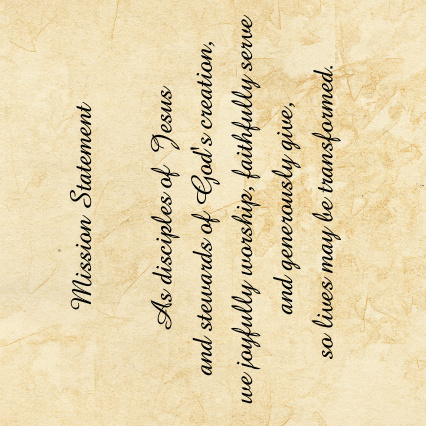 Mission Statement
As disciples of Jesus
and stewards of God's creation,
we joyfully worship, faithfully serve
and generously give,
so lives may be transformed.